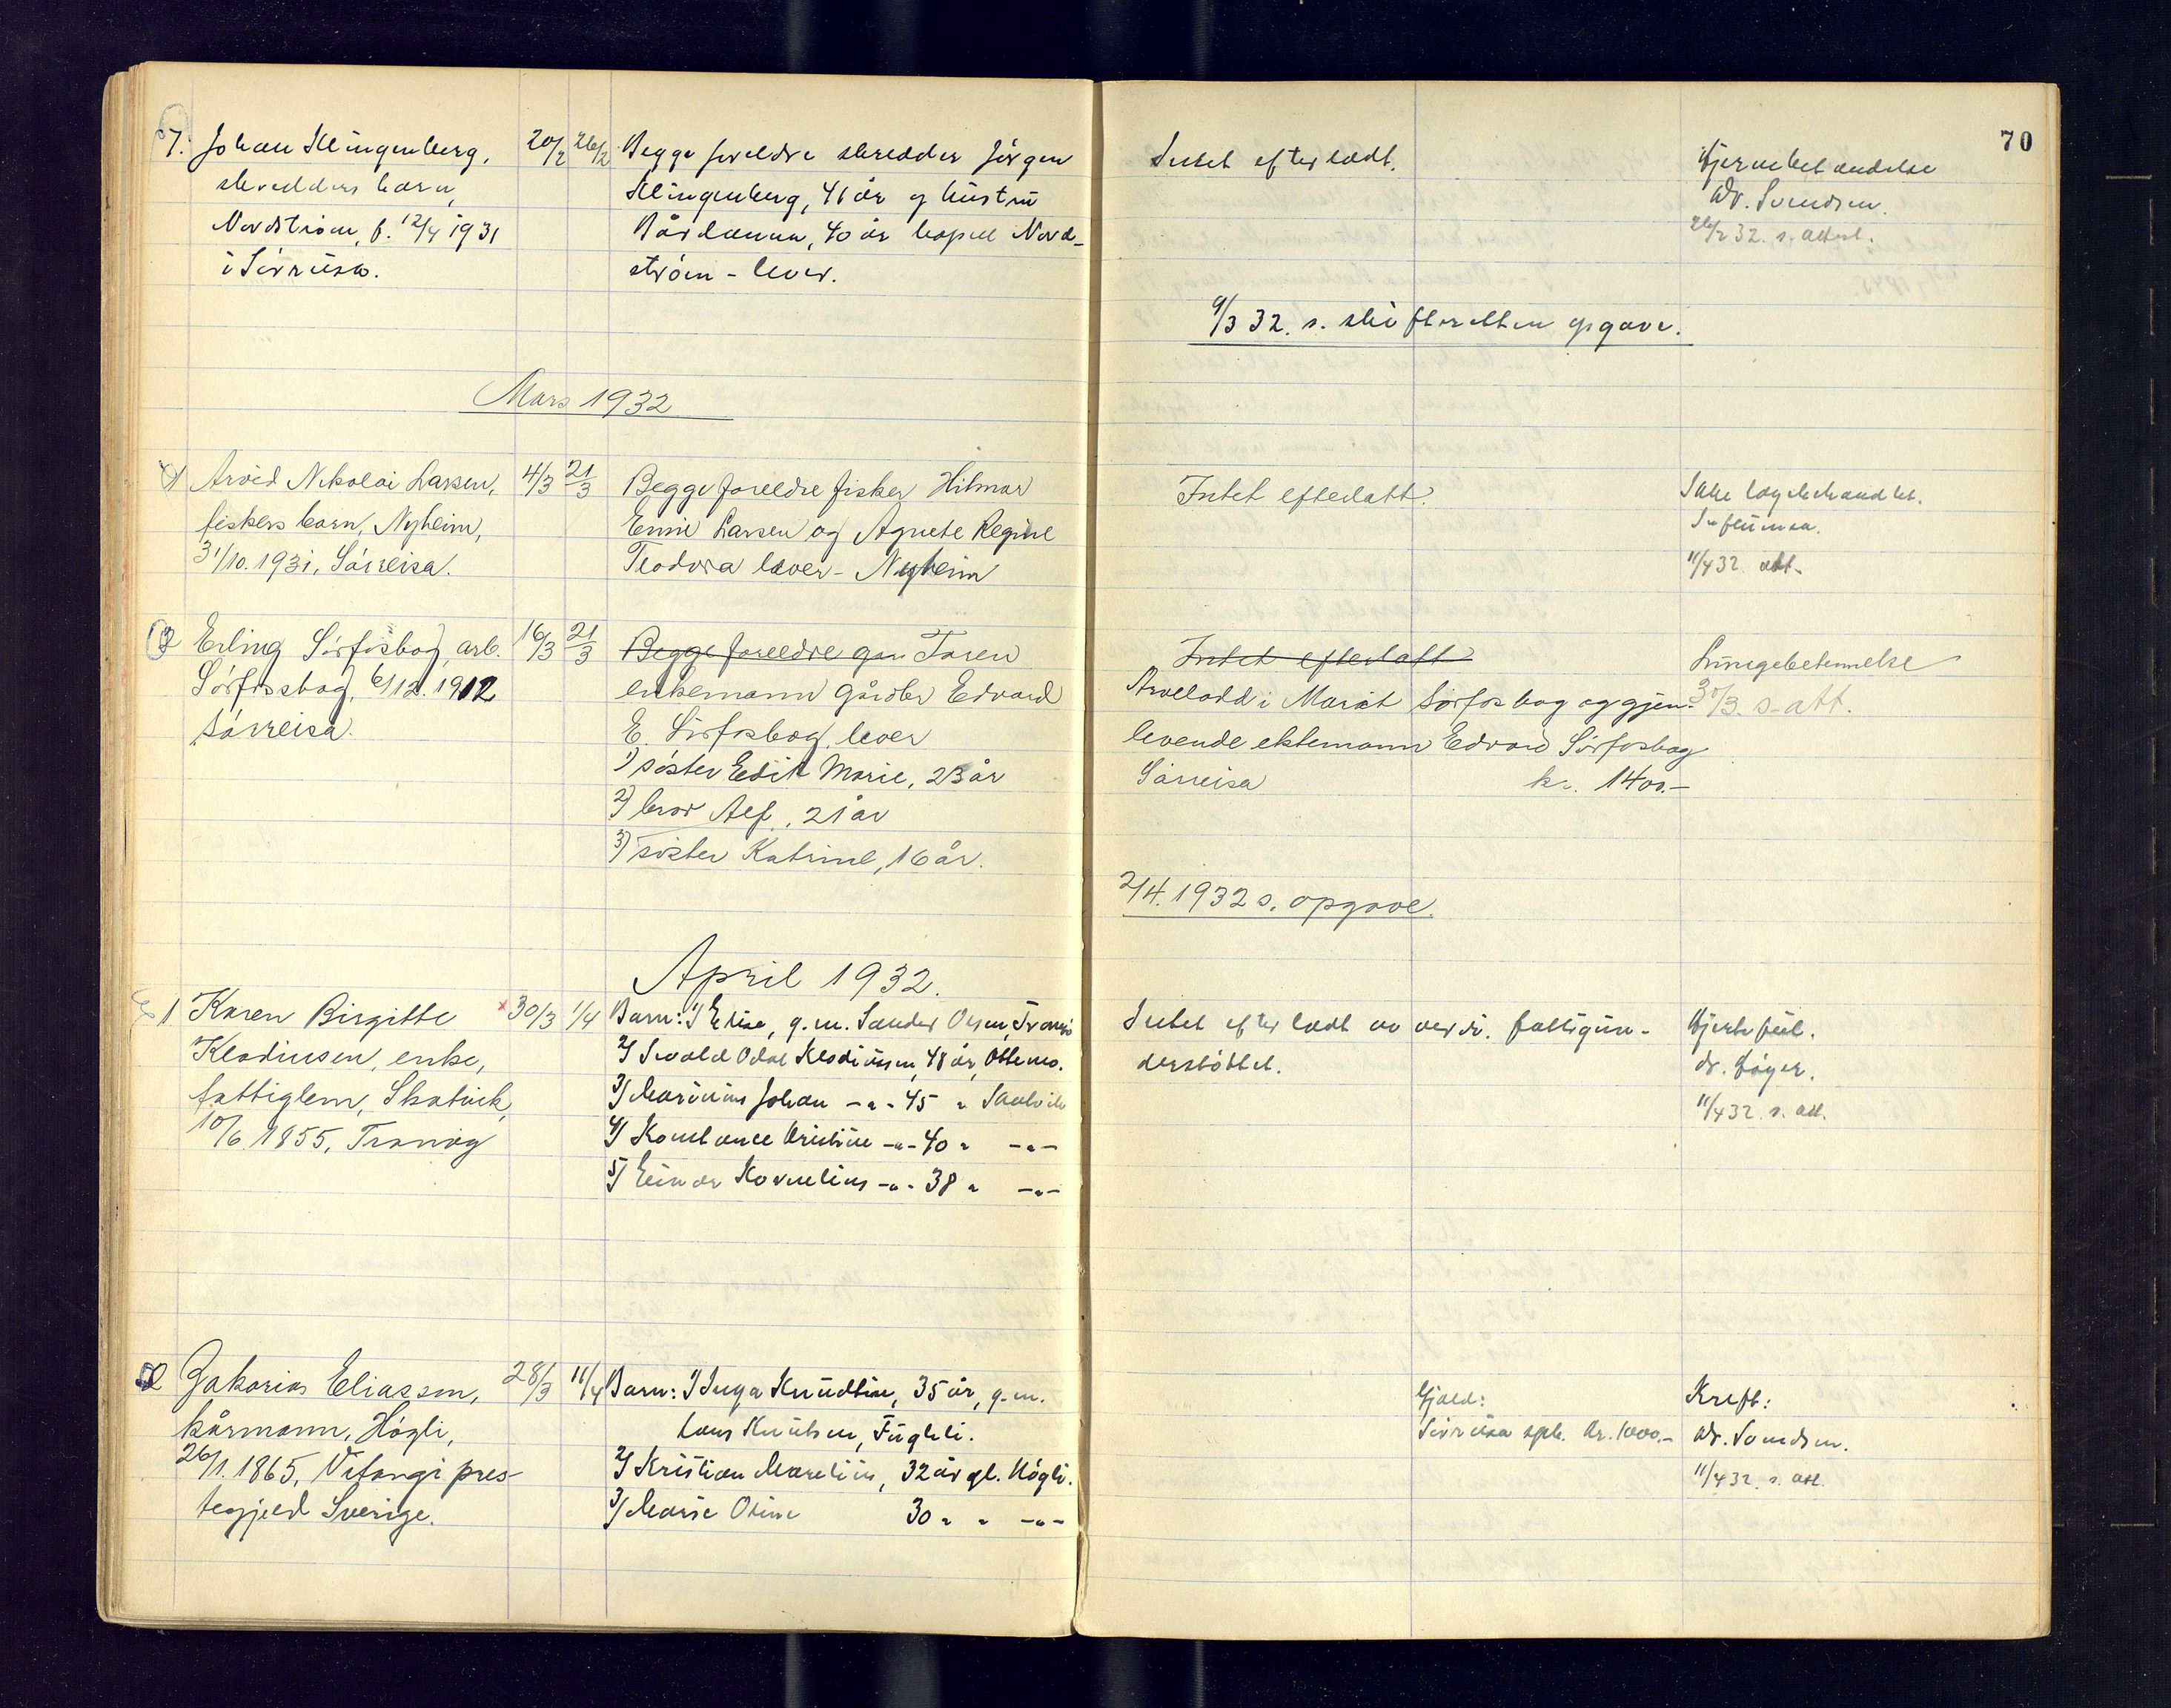 70
7. Johan Klingenberg, 20/2 26/2 Begge foreldre skredder Jørgen
skredders barn, Klingenberg, 41 år og hustru
Nordstrøm, f. 12/4 1931 40 år bopel Nord-
i Sørreisa. strøm - lever.
Intet efterladt.
dr. Svendsen.
26/2 32. s. attest.
9/3 32. s. skifteretten opgave.
Mars 1932
1 Arvid Nikolai Larsen, 4/3 21/3 Begge foreldre fisker Hilmar
fiskers barn, Nyheim, Larsen og Agnete Regine
31/10. 1931, Sørreisa. Teodora lever - Nyheim
Intet efterlatt. Ikke lægebehandlet.
Influensa.
11/4 32 att.
2 Erling Sørfosbog, arb. 16/3 21/3 Begge foreldre gm Faren
Sørfosbog, 6/12. 1912 enkemann gårdbr Edvard
Sørreisa. E. Sørfosbog, lever
1) søster Edit Marie, 23 år
2) bror Alf, 21 år
3) søster Katrine, 16 år.
Intet efterlatt Lungebetennelse
Arvelodd i Marit Sørfosbog og gjen- 30/3. s. att.
levende ektemann Edvard Sørfosbog
Sørreisa kr. 1400.-
2/4. 1932 s. opgave.
April 1932.
1 Karen Birgitte x 30/3 1/4 Barn: 1/ Elise, g.m. Sander Olsen, Tranøi
Klodiusen, enke, 2/ Sivald Odal Klodiussen, 48 år,
fattiglem, Skatvik, 3/ Marinius Johan -"- 45 "
10/6 1855, Tranøy 4/ Konstance Kristine -"- 40 " -"-
5/ Einar Kornelius -"- 38 " -"-
Intet efterladt av verdi. fattigun- Hjertefeil.
derstøttet. dr. Høyer.
11/4 32. s. att.
2 Zakarias Eliassen, 28/3 11/4 Barn: 1/ Inga Knudtine, 35 år, g.m.
kårmann, Høgli, Hans Knutsen, Fugleli.
26/1. 1865, pres- 2/ Kristian Marelius, 32 år gl. Høgli.
tegjeld Sverige. 3/ Marie Oline 30 " " -"-
Gjeld: Kreft:
Sørreisa spb. kr. 1000.- dr. Svendsen.
11/4 32. s. att.